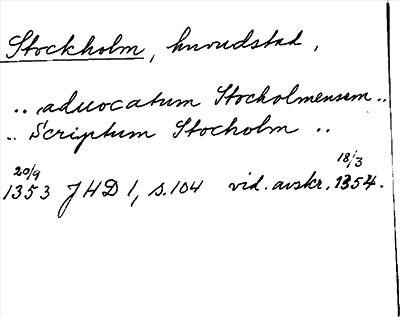 Stockholm, huvudstad,
.. advocatum Stocholmensem ..
.. Scriptum Stocholm ..
20/9 18/3
1353 JHD 1, s.104 vid. avskr. 1354.